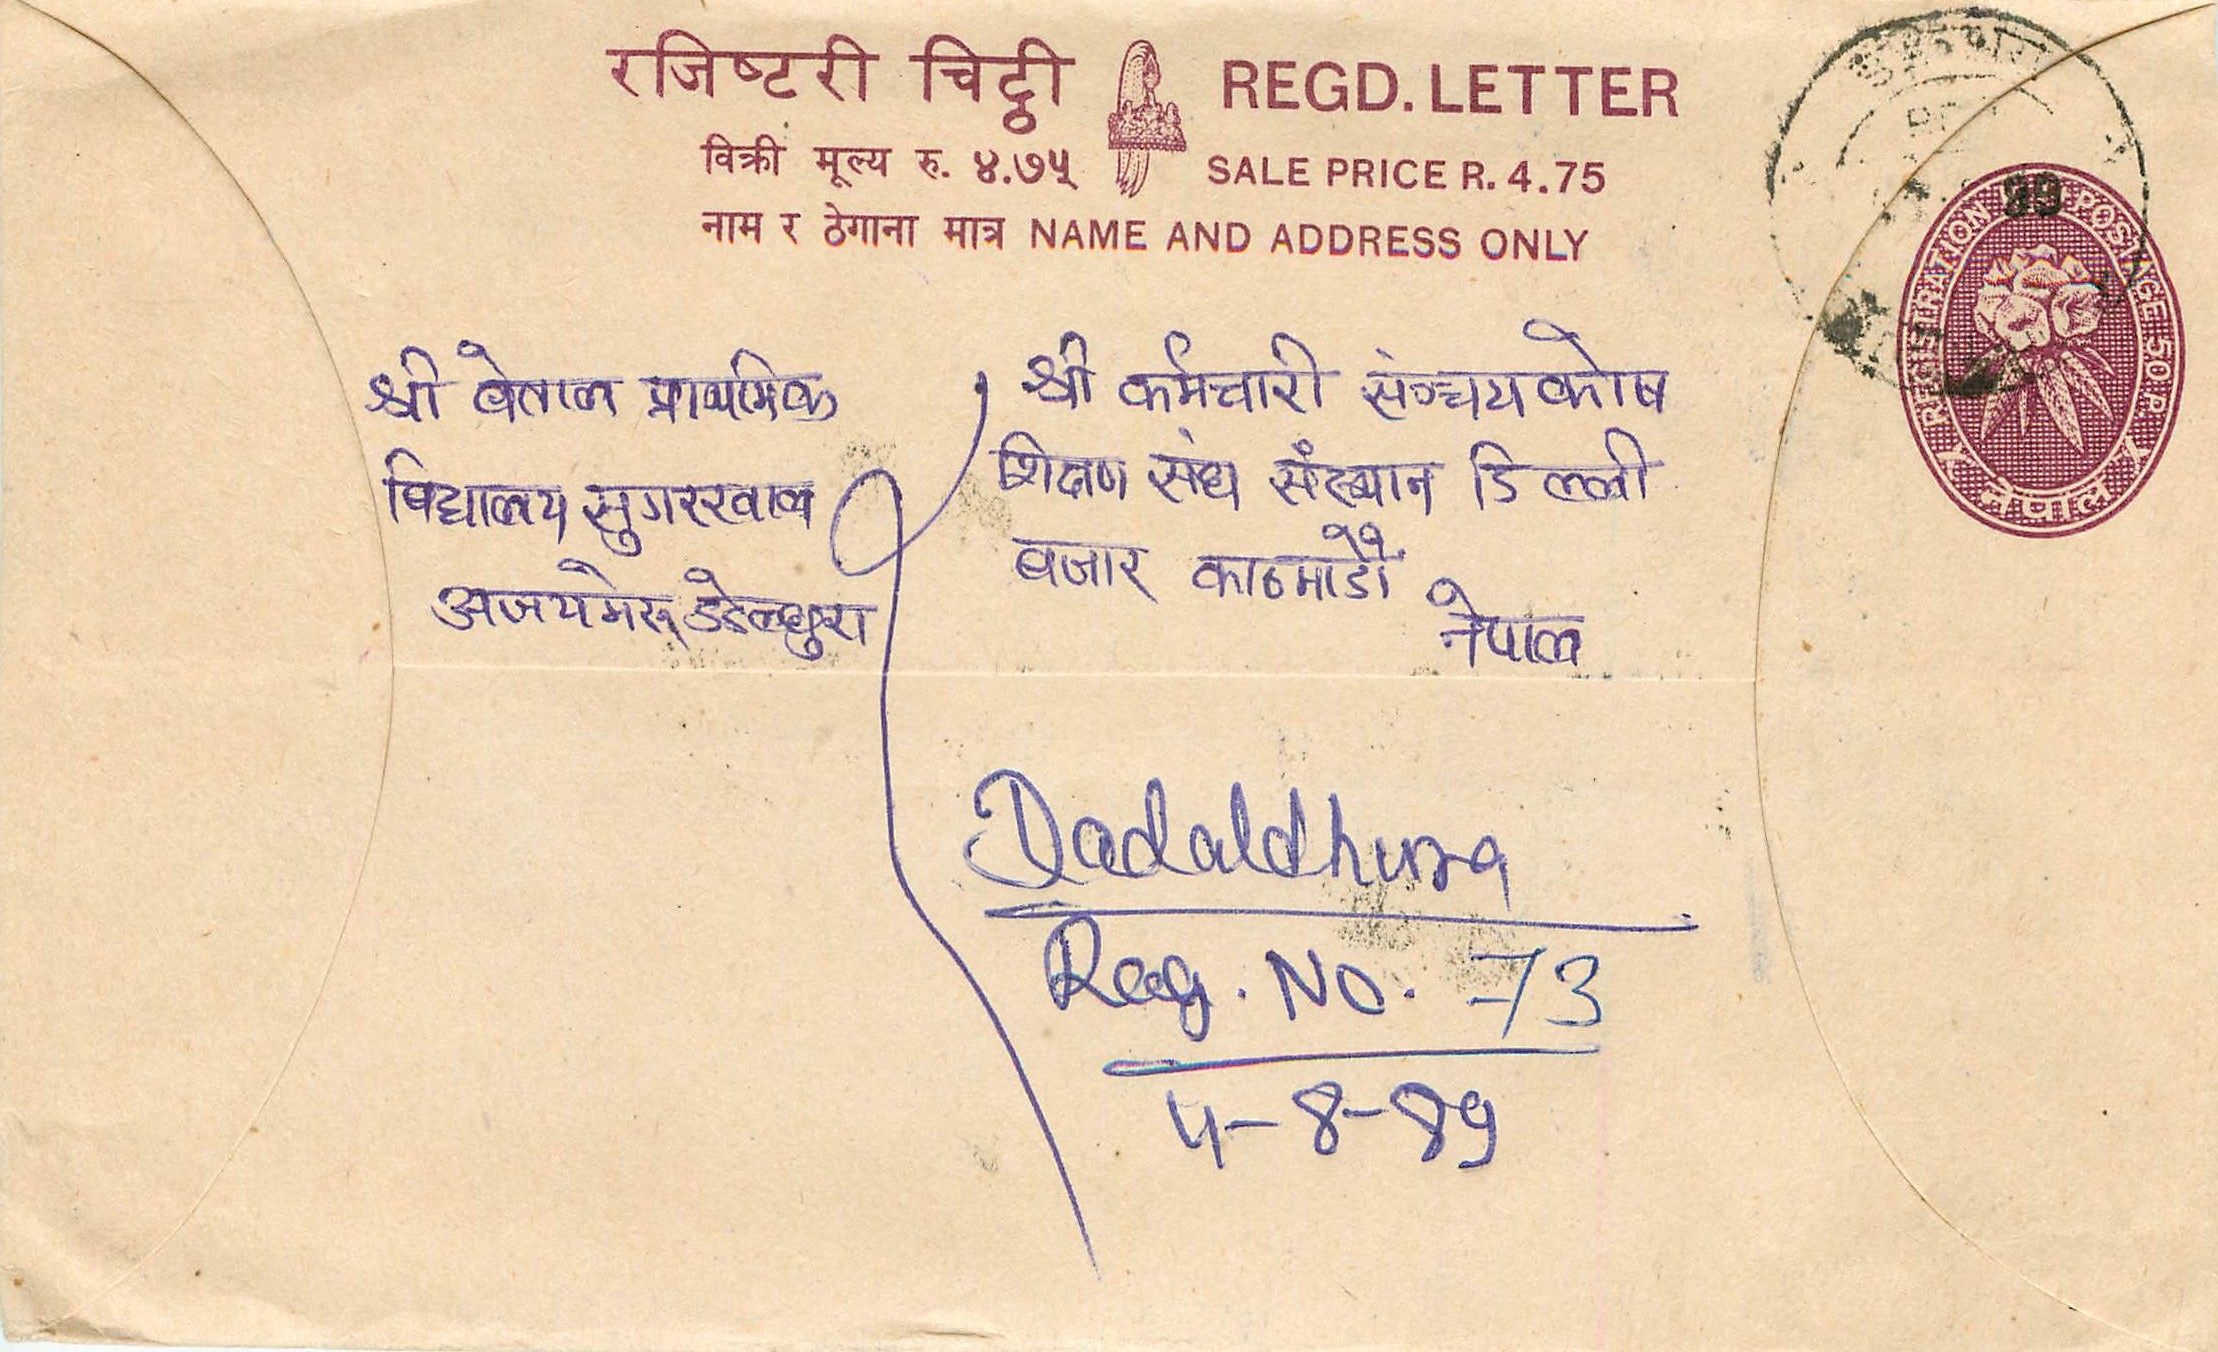 रजिष्टरी चिट्ठी REGD. LETTER
विक्री मूल्य रु. ४.७५ SALE PRICE R. 4.75
नाम र ठेगाना मात्र NAME AND ADDRESS ONLY
REGISTRATION POSTAGE 50 P.
नेपाल
99
श्री वेताल प्राथमिक
विद्यालय सुगरखाल
अजयमेरू डडेल्धुरा
श्री कर्मचारी सञ्चयकोष
शिक्षण संघ संस्थान डिल्ली
बजार काठमाडौं
नेपाल
Dadaldhura
Reg. No. 73
4-8-89